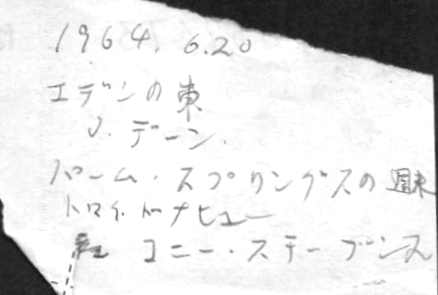 1964. 6.20
エデンの東
J. デーン.
パーム・スプリングスの週末
トロイ・ドナヒュー
コニー・ステーブンス